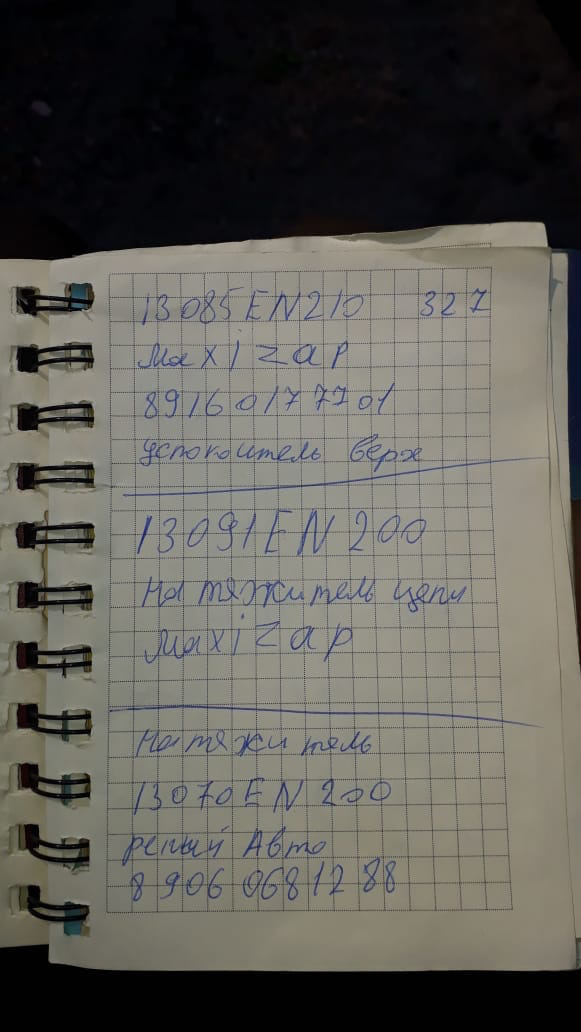 13085EN210 327
Maxizap
89160177701
успокоитель верх
13091EN200
Натяжитель цепи
Maxizap
Натяжитель
13070EN200
Авто
8 906 068 12 88